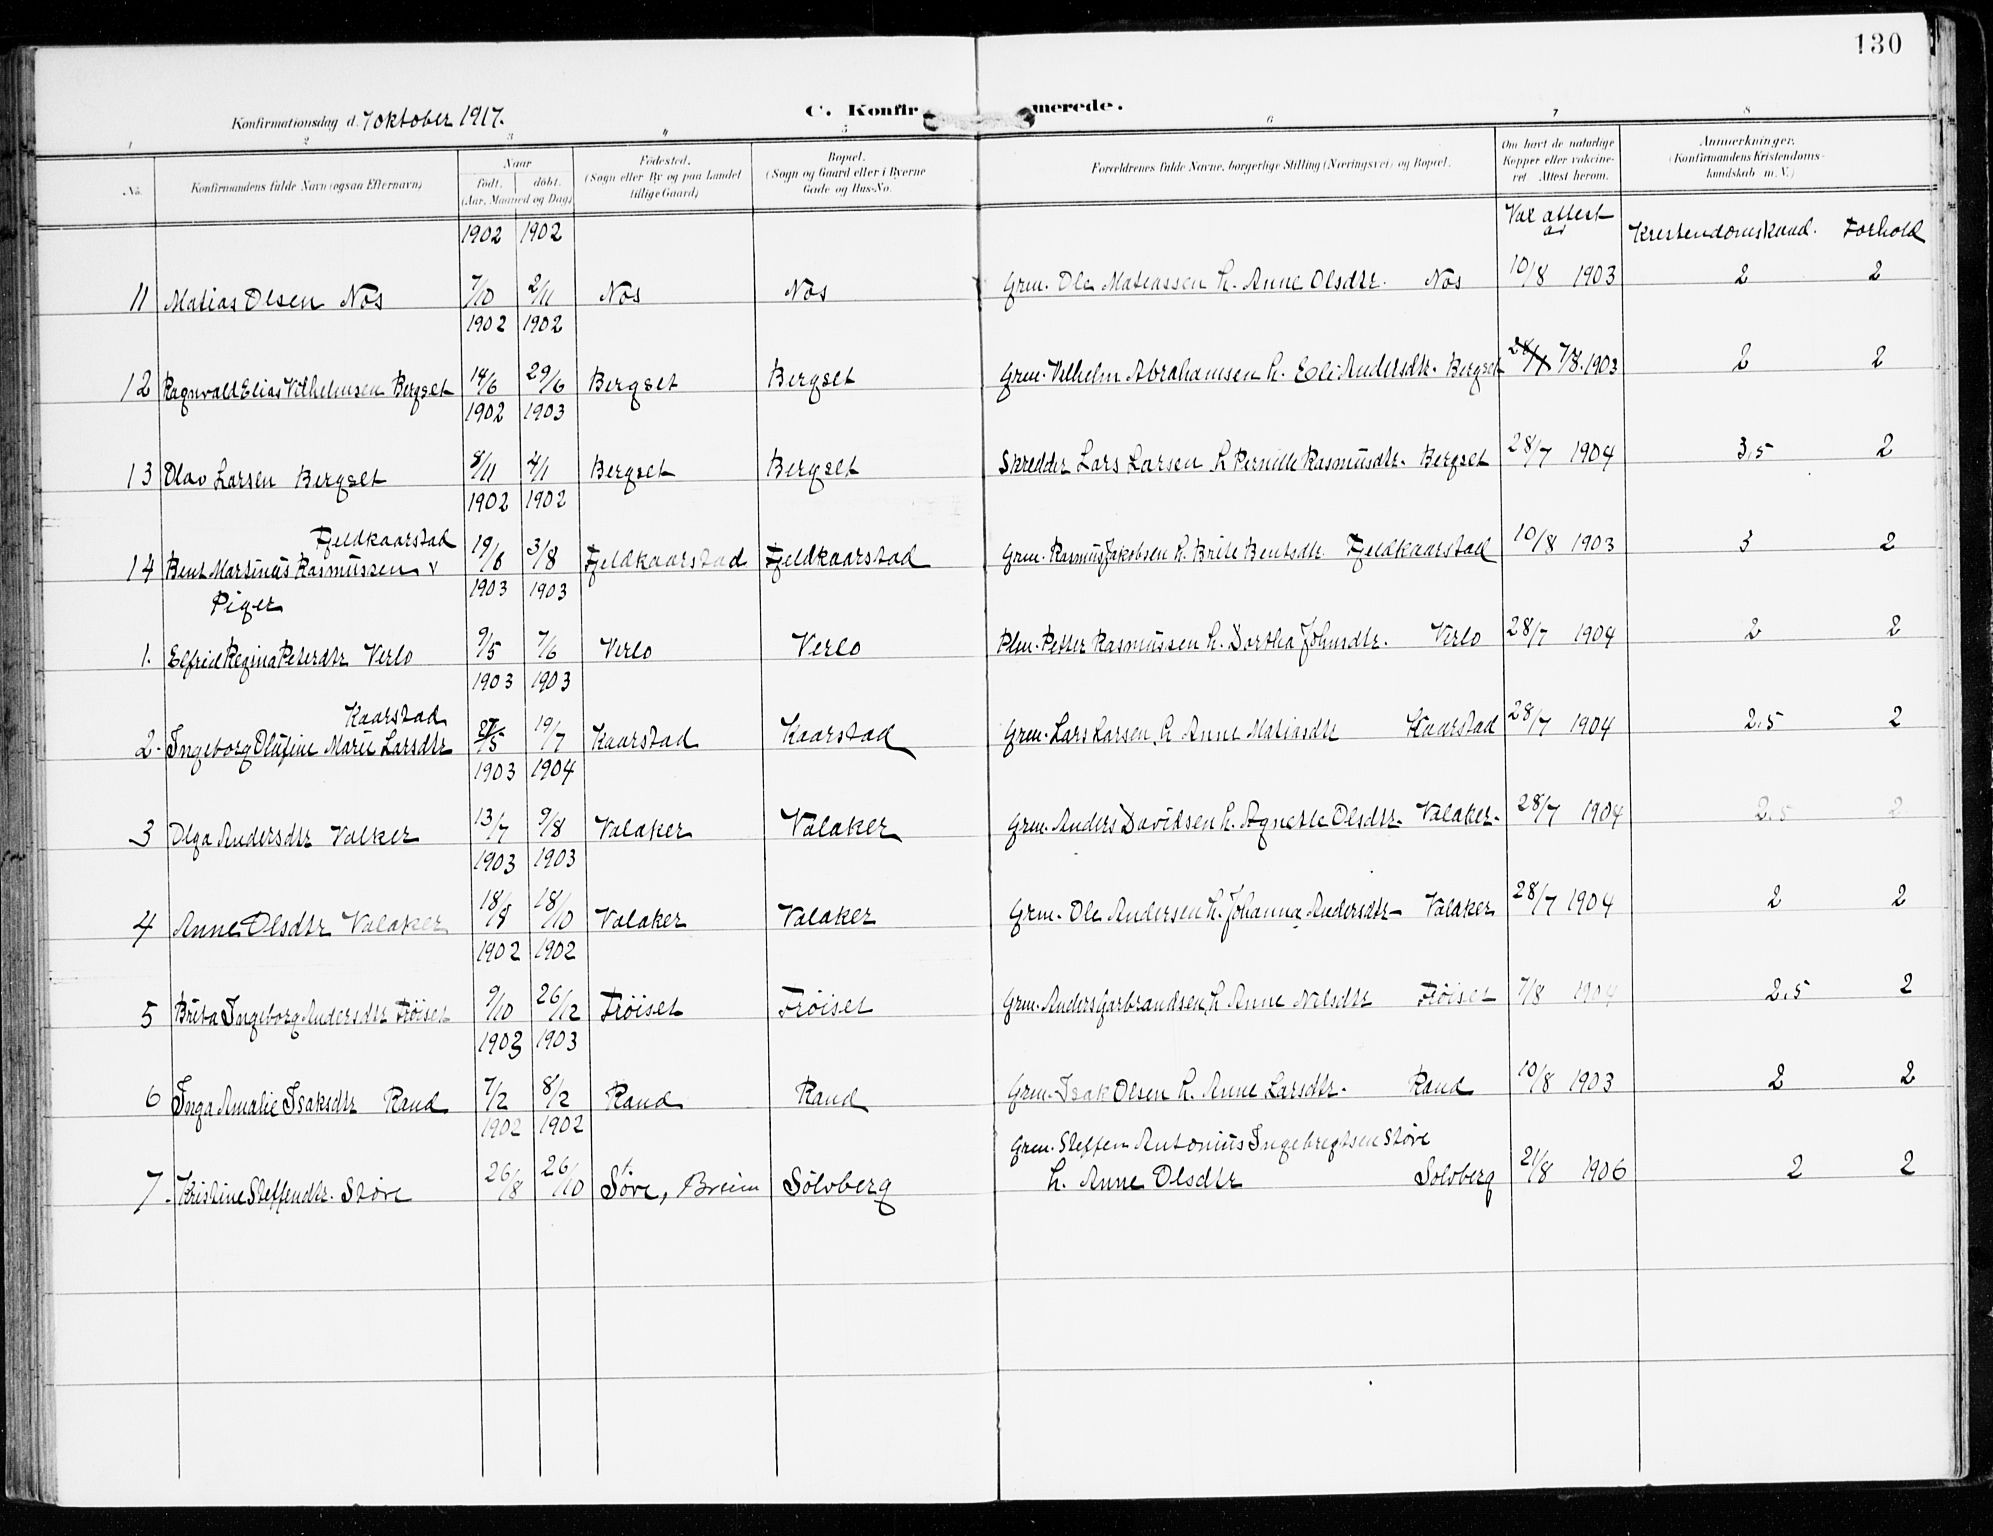 130
Konfirmationsdag d. 7 oktober 1917.
C. Konfirmerede.
1 2 3 4 5 6 7 8
No. Konfirmandens fulde Navn (ogsaa Efternavn) Naar født. døbt. (Aar, Maaned og Dag) Fødested. (Sogn eller By og paa Landet tillige Gaard) Bopæl. (Sogn og Gaard eller i Byerne Gade og Hus-No. Forældrenes fulde Navne, borgerlige Stilling (Næringsvei) og Bopæl. Om havt de naturlige Kopper eller vakcineret Attest herom. Anmerkninger. (Konfirmandens Kristendomskundskab m. V.)
1902 1902 Vac attest av Kristendomskund. Forhold
11 Matias Olsen Nos 7/10 2/11 Nos Nos Grm. Ole Matiassen h. Anne Olsdtr. Nos 10/8 1903 2 2
1902 1902
12 Ragnvald Elias Vilhelmsen Bergset 14/6 29/6 Bergset Bergset Grm. Vilhelm Abrahamsen h. Eli Andersdtr. Bergset 7/8. 1903 2 2
1902 1903
13 Olav Larsen Bergset 8/11 4/1 Bergset Bergset Skredder Lars Larsen h Pernille Rasmusdtr. Bergset 28/7 1904 3,5 2
1902 1902
Fjeldkaarstad
14 Bent Martinus Rasmussen v 19/6 3/8 Fjeldkaarstad Fjeldkaarstad Grm. Rasmus Jakobsen h. Brite Bentsdtr. Fjeldkaarstad 10/8 1903 3 2
1903 1903
Piger
1. Elfrid Regina Petersdtr Verlo 9/5 7/6 Verlo Verlo Plm. Petter Rasmussen h. Dortha Johnsdtr. Verlo 28/7 1904 2 2
1903 1903
Kaarstad
2. Ingeborg Olufine Marie Larsdtr 27/5 19/7 Kaarstad Kaarstad Grm. Lars Larsen, h Anne Matiasdtr Kaarstad 28/7 1904 2.5 2
1903 1904
3 Olga Andersdtr Valker 13/7 9/8 Valaker Valaker Grm. Anders Davidsen h. Agnethe Olsdtr. Valaker. 28/7 1904 2.5 2
1903 1903
4 Anne Olsdtr Valaker 18/8 18/10 Valaker Valaker Grm. Ole Andersen h. Johanna Andersdtr Valaker 28/7 1904 2 2
1902 1902
5 Brita Ingeborg Andersdtr Frøiset 9/10 26/12 Frøiset Frøiset Grm. Anders Garbrandsen h Anne Nilsdtr Frøiset 7/8 1904 2,5 2
1903 1903
6 Inga Amalie Isaksdtr Rand 7/2 8/2 Rand Rand Grm. Isak Olsen h. Anne Larsdtr. Rand 10/8 1903 2 2
1902 1902
Grm. Steffen Antonius Ingebregtsen Støve
7. Kristine Steffendtr. Støve 26/8 26/10 Søve, Breim Sølvberg h. Anne Olsdtr Solvberg 21/8 1906 2 2